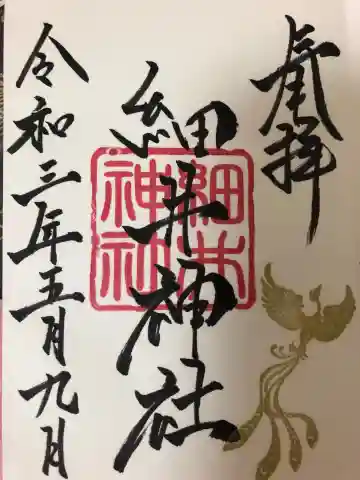 奉拝
細井神社
細井神社
令和三年五月九日